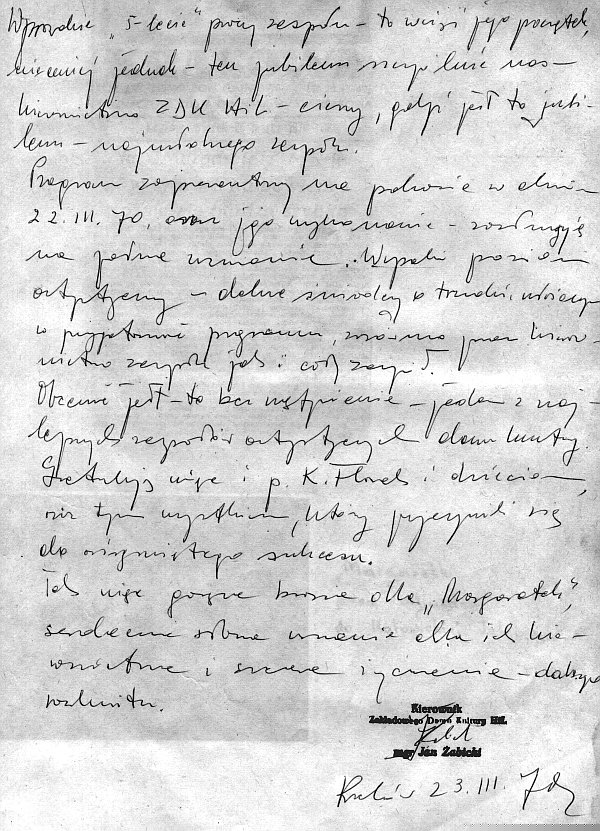 Wprawdzie „5-lecie" pracy zespołu – to wciąż jego początek,
niemniej jednak – ten jubileusz
kierownictwo ZDK HiL – cieszy, gdyż jest to jubi-
leusz – naprawdę zespołu.
Program zaprezentowany na pokazie w dniu
22.III.70, oraz jego wykonanie – zasługuje
na pełne uznanie. Wysoki poziom
artystyczny – dobre o trudzie, włożonym
w przygotowanie programu, zarówno przez kierow-
nictwo zespołu jak i cały zespół.
Obecnie jest – to bez wątpienia – jeden z naj-
lepszych zespołów artystycznych domu kultury.
Gratuluję więc i p. K. i dzieciom,
oraz tym wszystkim, którzy przyczynili się
do osiągniętego sukcesu.
Tak więc gorące brawa dla „Margaretek",
serdeczne słowa uznania dla ich kie-
rownictwa i szczere życzenia – dalszego
rozkwitu.
Kierownik
Zakładowego Domu Kultury HiL
mgr Jan Żabicki
Kraków 23.III.70